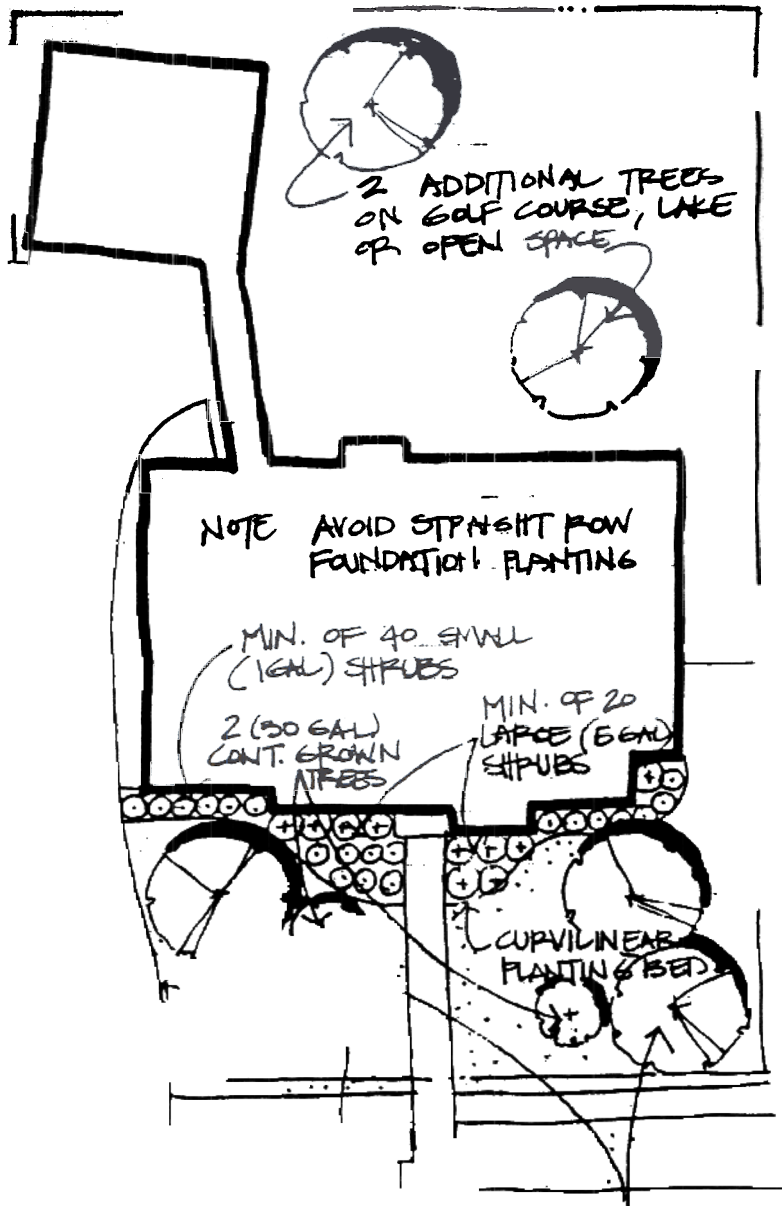 2 ADDITIONAL TREES
ON GOLF COURSE, LAKE
OR OPEN SPACE
NOTE AVOID STRAIGHT ROW
FOUNDATION PLANTING
MIN. OF 40 SMALL
(1GAL) SHRUBS
2 (30 GAL)
CONT. GROWN
TREES
MIN. OF 20
LARGE (5 GAL)
SHRUBS
CURVILINEAR
PLANTING BED